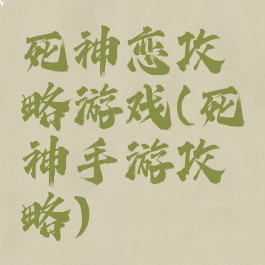 死神恋攻
略游戏(死
神手游攻
略)